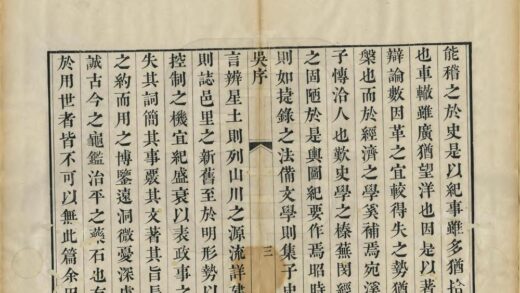 能稽之於史是以紀事雖多猶拾
也車轍雖廣猶望洋也因是以著
辯論數因革之宜較得失之勢猶
槩也而於經濟之學奚補焉宛溪
子博洽人也歎史學之榛蕪閔經
之固陋於是輿圖紀要作焉昭時
則如捷錄之法備文學則集子史
吳序
三
言辨星土則列山川之源流詳建
則誌邑里之新舊至於明形勢以
控制之機宜紀盛衰以表政事之
失其詞簡其事覈其文著其旨長
之約而用之博鑒遠洞微憂深慮
誠古今之龜鑑治平之藥石也有
於用世者皆不可以無此篇余